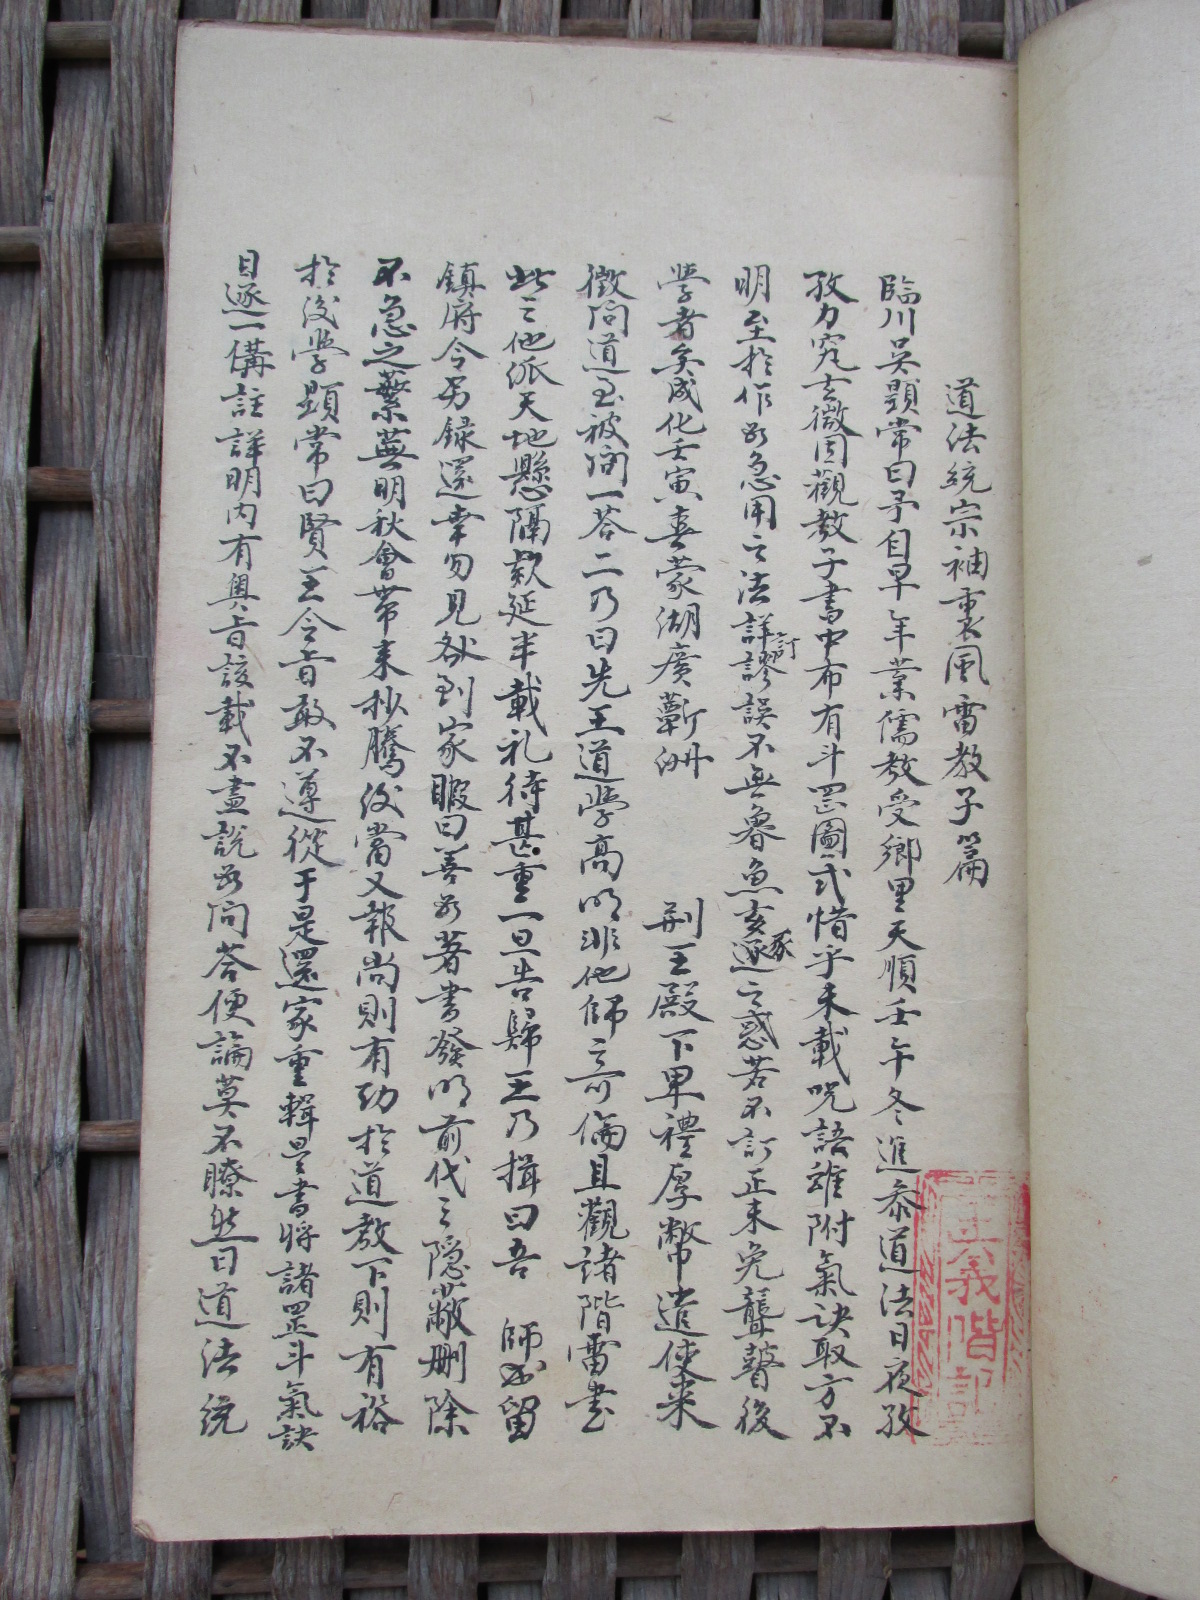 道法統宗袖裏風雷教子篇
臨川吳顕常曰予自早年業儒教受鄉里天順壬午冬進叅道法日夜孜
孜力究玄微因觀教子書中布有斗罡圖式惜乎未載咒語雖附氣訣取方不
明至於作用之法詳訂謬誤不無魯魚亥豕之惑若不訂正未免聾瞽後
學者矣成化壬寅喜蒙湖廣蘄州 荆王殿下卑禮厚幣遣使來
徵問道至被詢一荅二乃曰先王道學高明非他師之倫且觀諸階雷書
此之他派天地懸隔欵延半載礼待甚重一旦告歸王乃揖曰吾 師必留
鎮府今另録還幸勿見却到家暇日善為著書發明前代之隱蔽删除
不急之蘩蕪明秋會帶来抄騰後當又報尚則有功於道教下則有裕
於後學顕常曰賢王令旨敢不遵從于是還家重輯是書將諸罡斗氣訣
目逐一備註詳明内有奥旨該載不盡說為問荅便論莫不瞭然曰道法統
正義階記